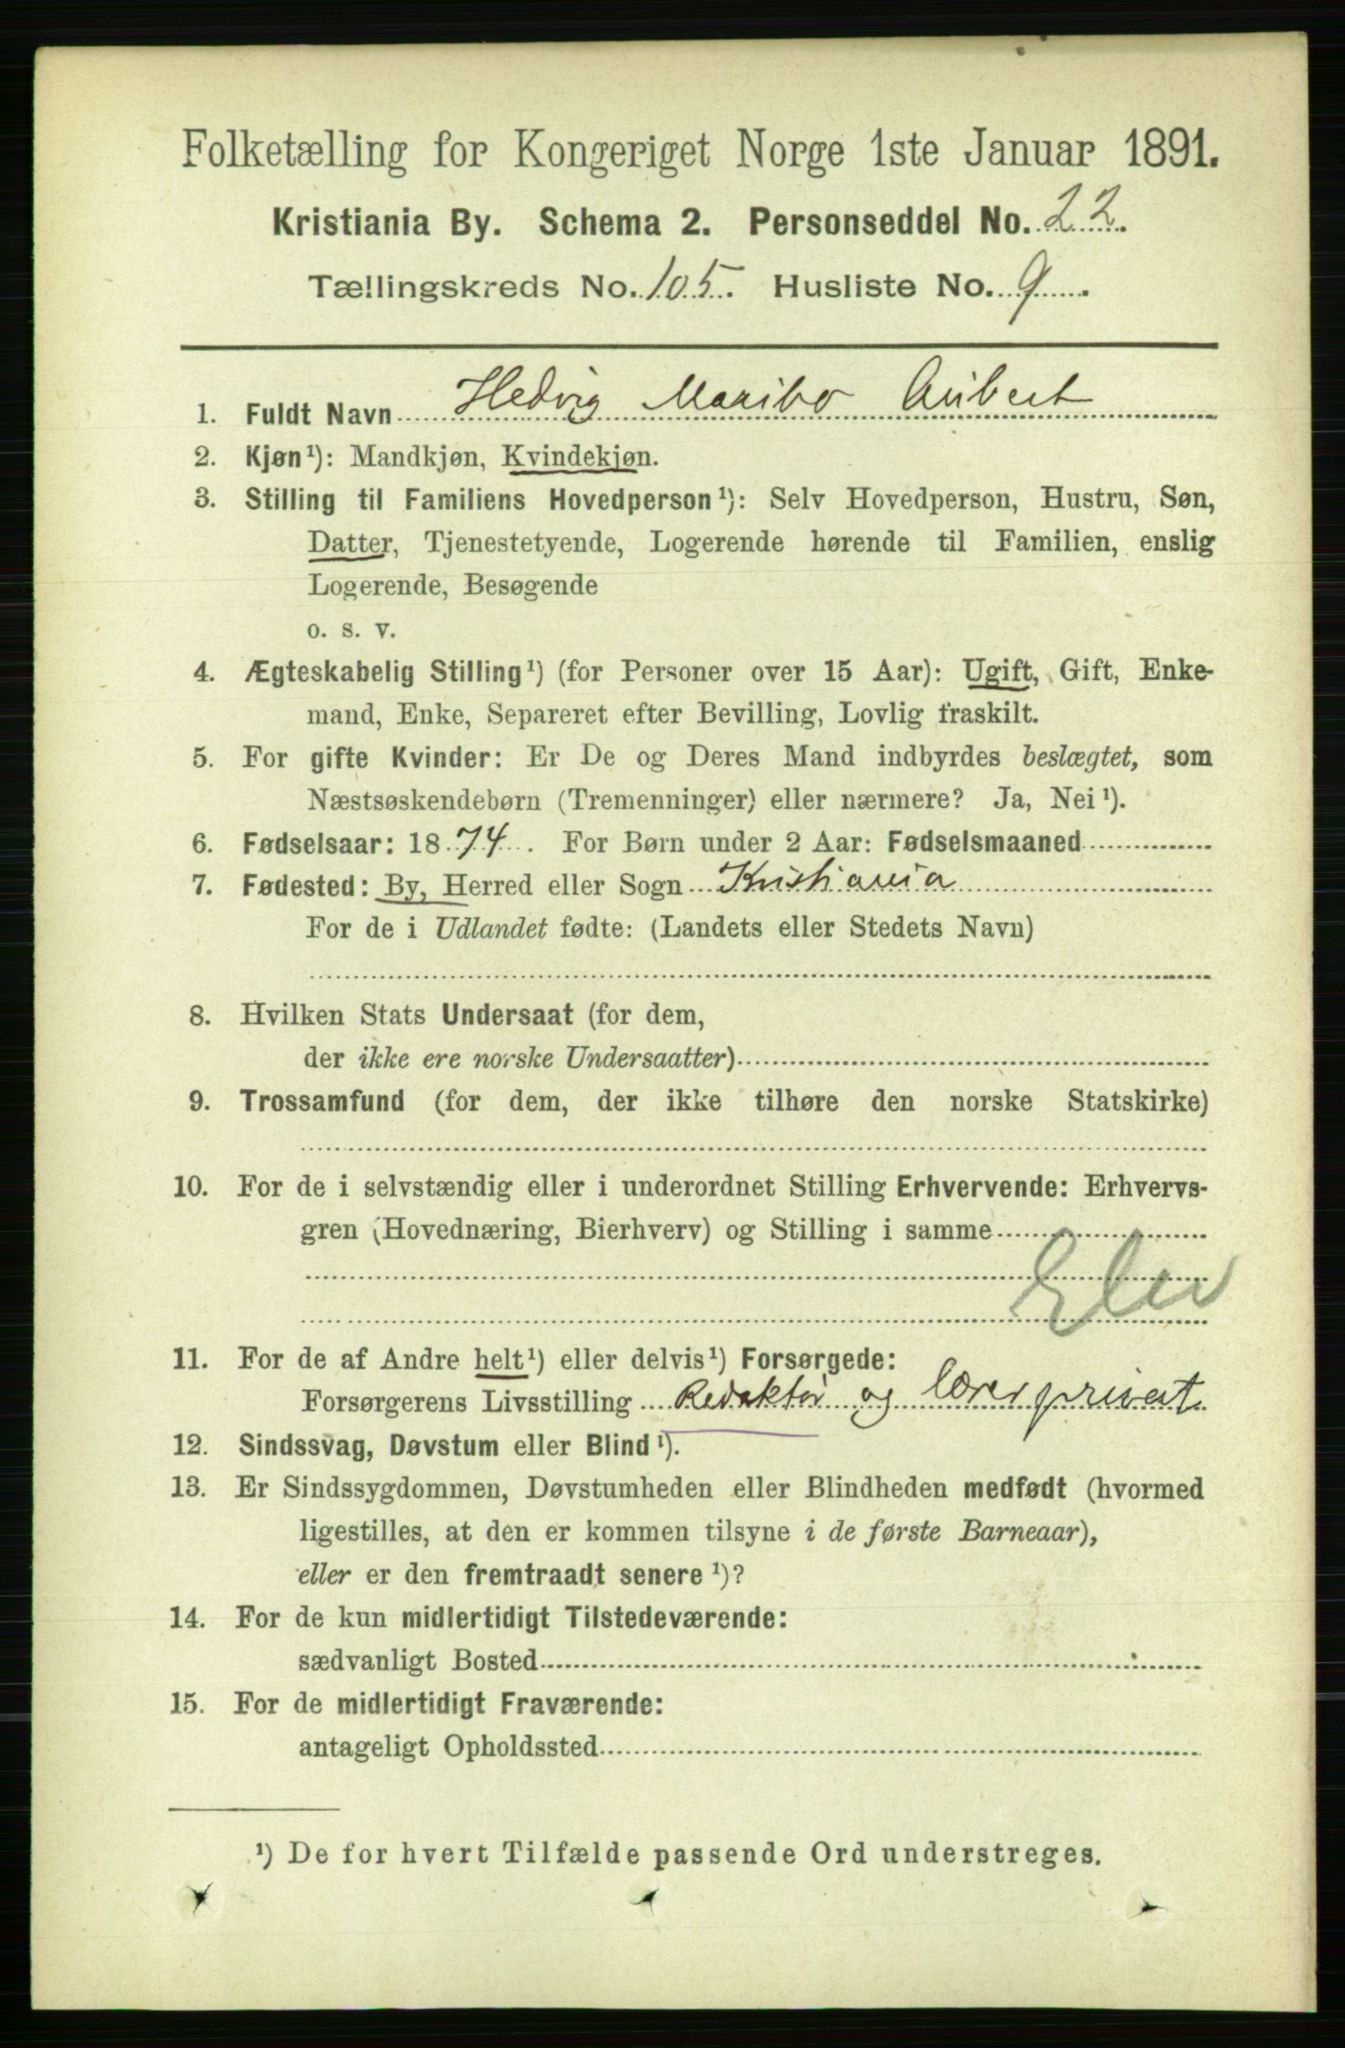 Folketælling for Kongeriget Norge 1ste Januar 1891.
Kristiania By. Schema 2. Personseddel No. 22.
Tællingskreds No. 105. Husliste No. 9.
1. Fuldt Navn Hedvig Maribo Aubert
2. Kjøn¹): Mandkjøn, Kvindekjøn.
3. Stilling til Familiens Hovedperson¹): Selv Hovedperson, Hustru, Søn,
Datter, Tjenestetyende, Logerende hørende til Familien, enslig
Logerende, Besøgende
o. s. v.
4. Ægteskabelig Stilling¹) (for Personer over 15 Aar): Ugift, Gift, Enke-
mand, Enke, Separeret efter Bevilling, Lovlig fraskilt.
5. For gifte Kvinder: Er De og Deres Mand indbyrdes beslægtet, som
Næstsøskendebørn (Tremenninger) eller nærmere? Ja, Nei¹).
6. Fødselsaar: 1874. For Børn under 2 Aar: Fødselsmaaned
7. Fødested: By, Herred eller Sogn Kristiania
For de i Udlandet fødte: (Landets eller Stedets Navn)
8. Hvilken Stats Undersaat (for dem,
der ikke ere norske Undersaatter)
9. Trossamfund (for dem, der ikke tilhøre den norske Statskirke)
10. For de i selvstændig eller i underordnet Stilling Erhvervende: Erhvervs-
gren (Hovednæring, Bierhverv) og Stilling i samme
Elev
11. For de af Andre helt¹) eller delvis¹) Forsørgede:
Forsørgerens Livsstilling Redaktør og lærer privat
12. Sindssvag, Døvstum eller Blind¹).
13. Er Sindssygdommen, Døvstumheden eller Blindheden medfødt (hvormed
ligestilles, at den er kommen tilsyne i de første Barneaar),
eller er den fremtraadt senere¹)?
14. For de kun midlertidigt Tilstedeværende:
sædvanligt Bosted
15. For de midlertidigt Fraværende:
antageligt Opholdssted
¹) De for hvert Tilfælde passende Ord understreges.